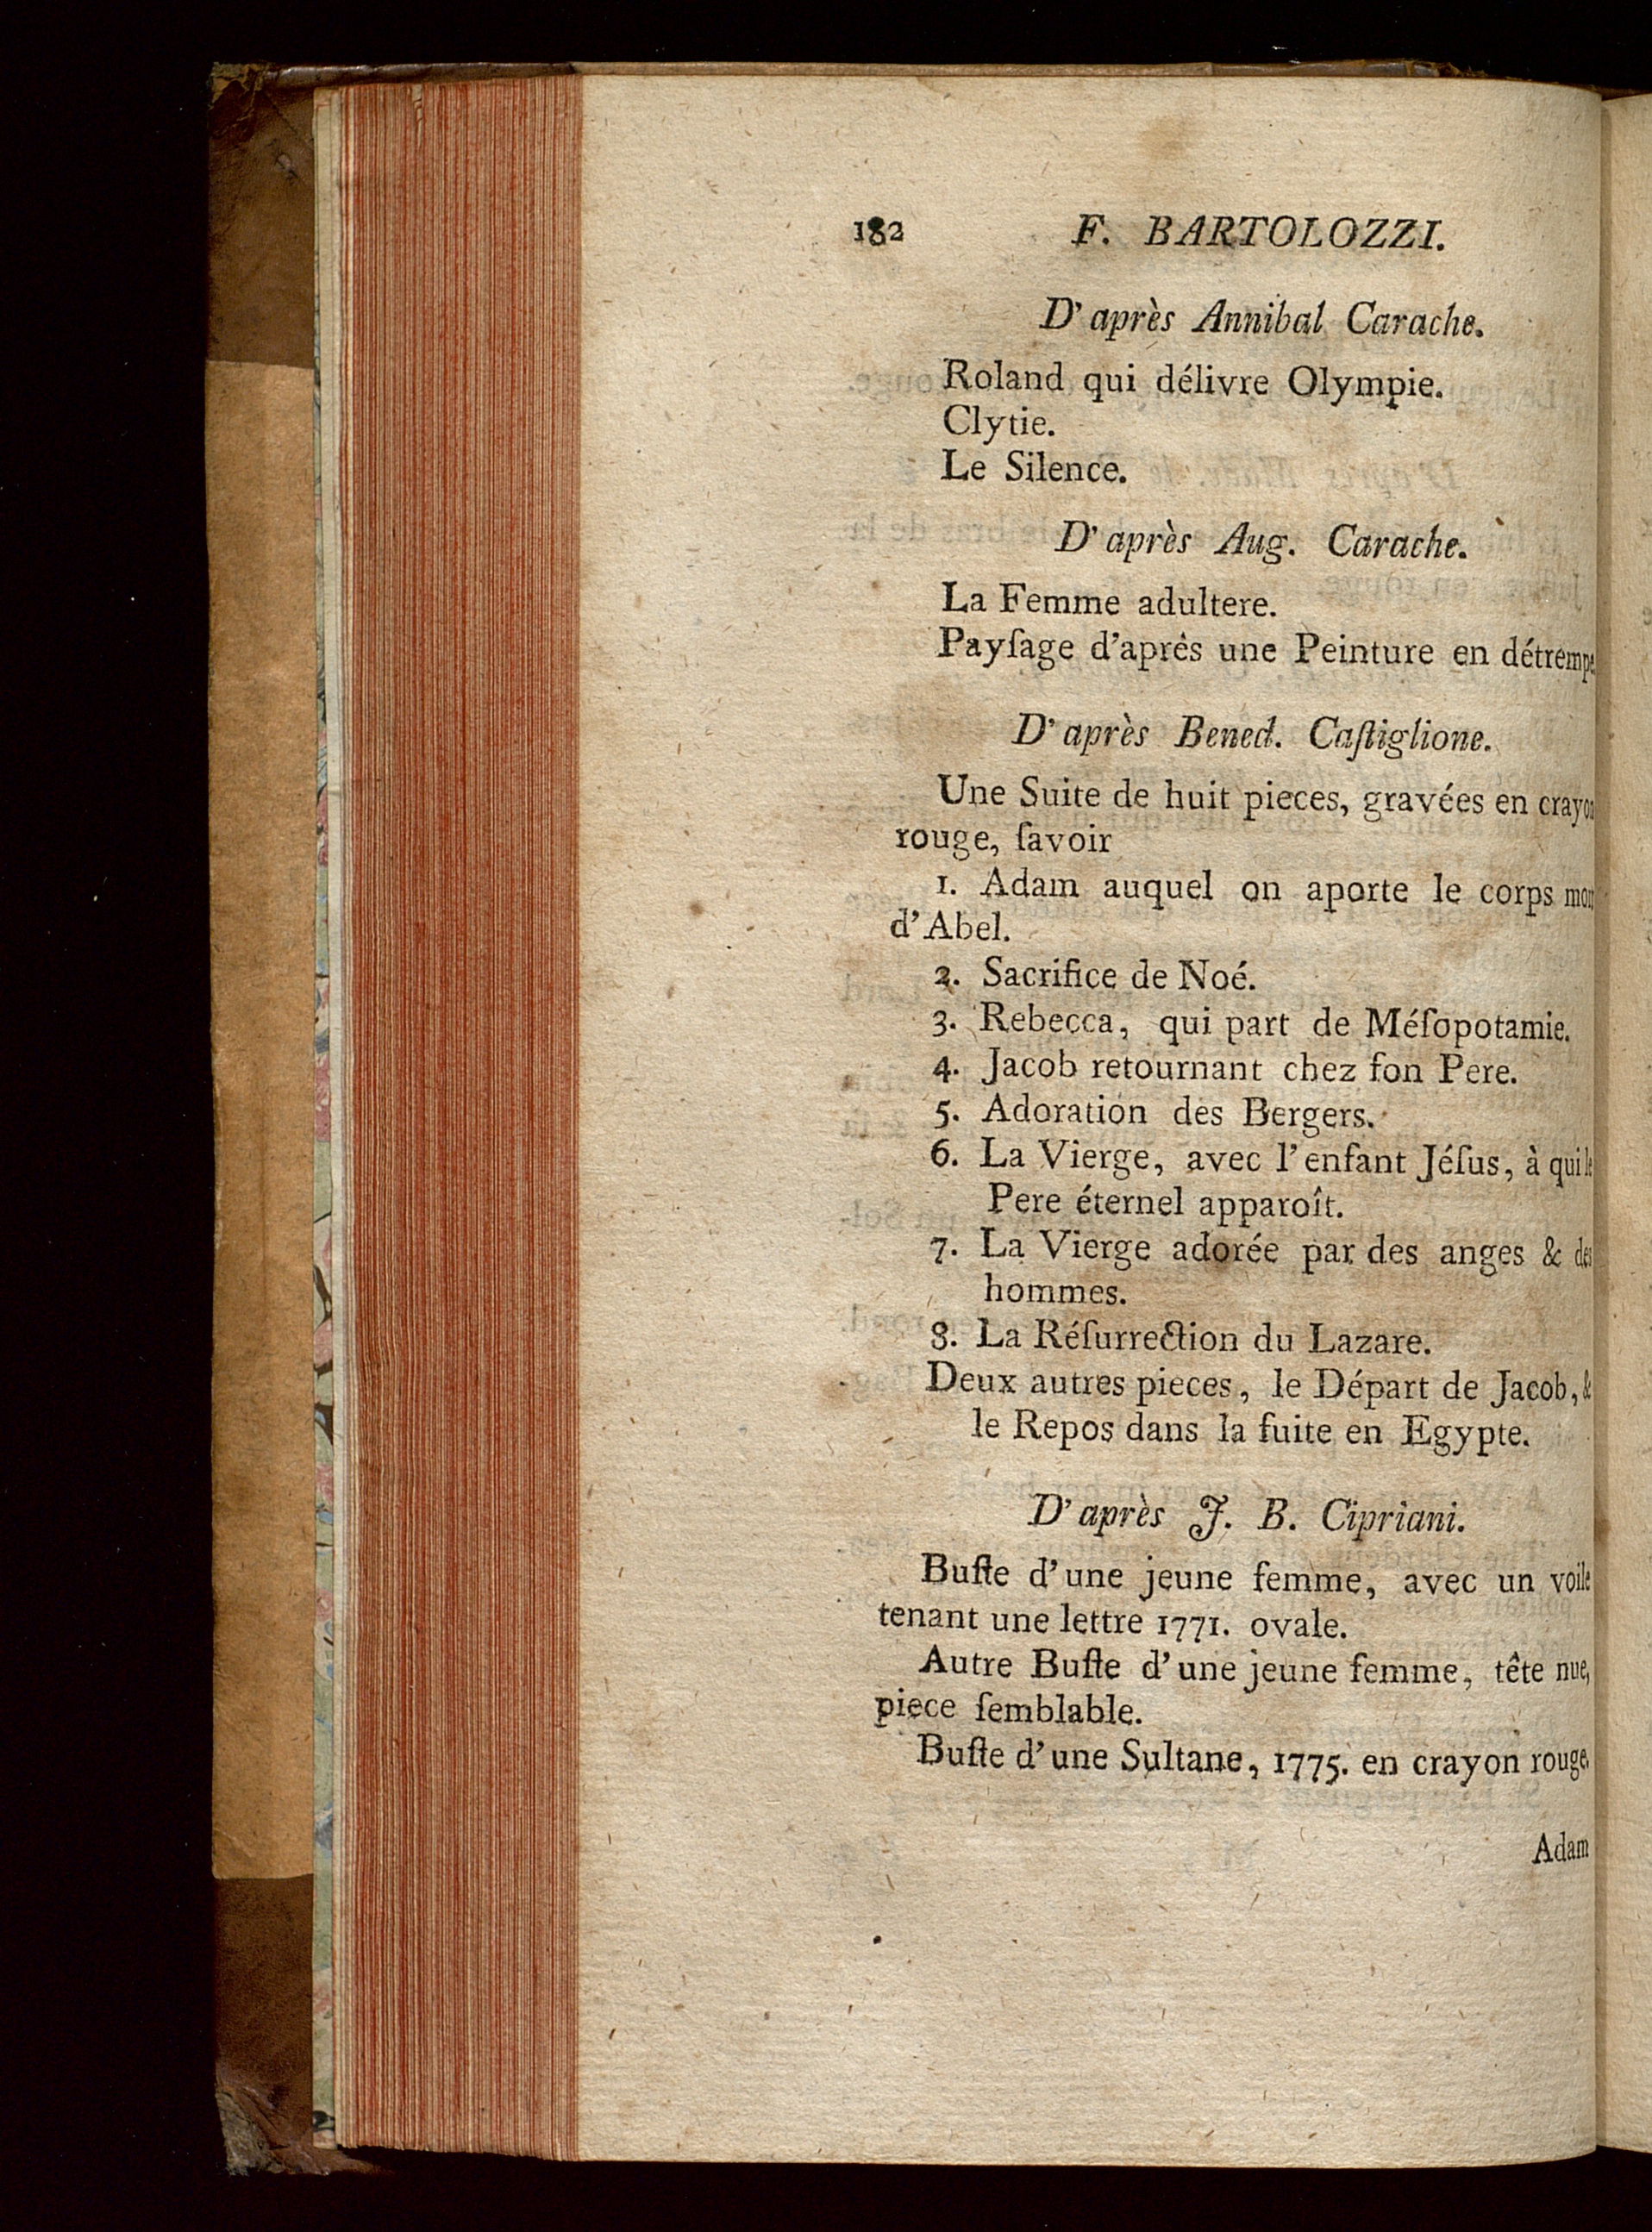 182 F. BARTOLOZZI.
D'après Annibal Carache.
Roland qui délivre Olympie.
Clytie.
Le Silence.
D'après Aug. Carache.
La Femme adultere.
Payſage d'après une Peinture en détrempe
D'après Bened. Caſtiglione.
Une Suite de huit pieces, gravées en crayon
rouge, ſavoir
1. Adam auquel on aporte le corps mort
d'Abel.
2. Sacrifice de Noé.
3. Rebecca, qui part de Méſopotamie.
4. Jacob retournant chez ſon Pere.
5. Adoration des Bergers.
6. La Vierge, avec l'enfant Jéſus, à qui le
Pere éternel apparoît.
7. La Vierge adorée par des anges & des
hommes.
8. La Réſurrection du Lazare.
Deux autres pieces, le Départ de Jacob, &
le Repos dans la fuite en Egypte.
D'après J. B. Cipriani.
Buſte d'une jeune femme, avec un voile
tenant une lettre 1771. ovale.
Autre Buſte d'une jeune femme, tête nue,
piece ſemblable.
Buſte d'une Sultane, 1775. en crayon rouge.
Adam